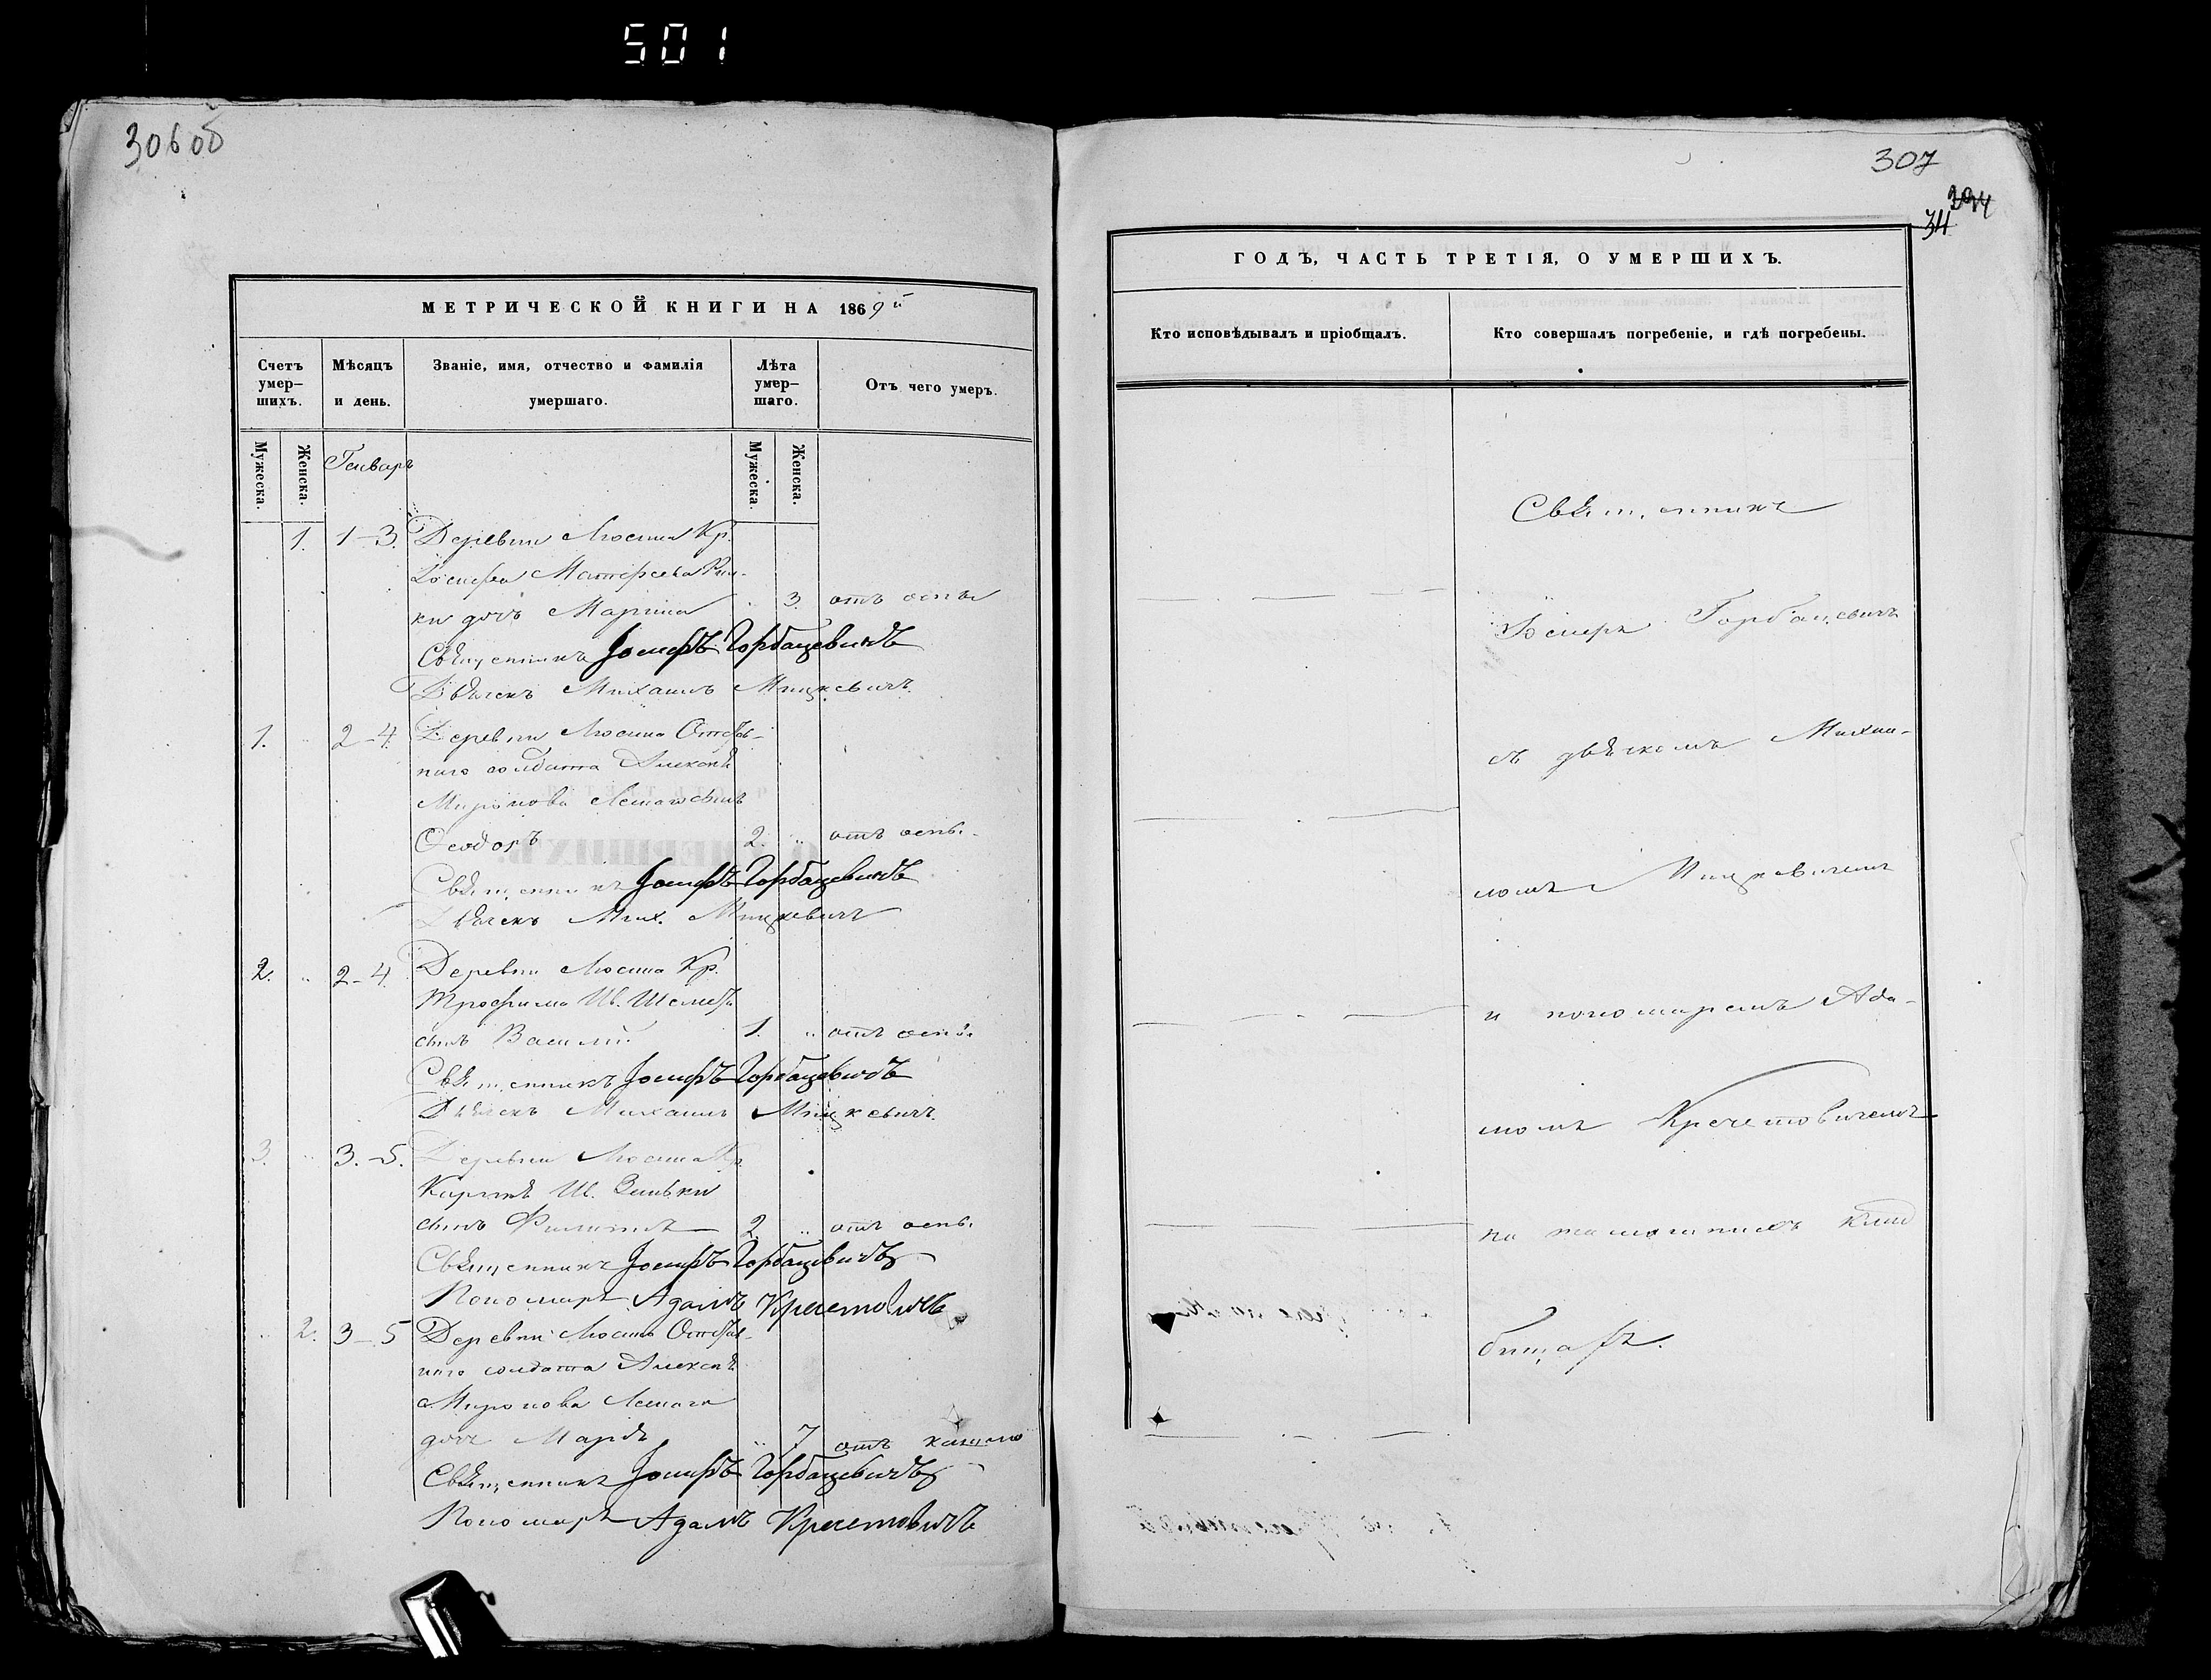 501
306 об
МЕТРИЧЕСКОЙ КНИГИ НА 1869й
Счетъ умер-шихъ.
Мѣсяцъ и день.
Званіе, имя, отчество и фамилія умершаго.
Лѣта умер-шаго.
Отъ чего умеръ.
Мужеска.
Женска.
Генварь
Мужеска.
Женска.
1. 1-3. Деревни Люсина Кр.
Іосифа
ки дочь Марина 3. отъ оспы
Священникъ Іосифъ Горбацевичъ
Дьячекъ Михаилъ Мицкевичъ.
1. „ 2-4. Деревни Люсина Отстав-
наго солдата Алексѣя
Миронова сынъ
Ѳеодоръ 2. „ отъ оспы.
Священникъ Іосифъ Горбацевичъ
Дьячекъ Мих. Мицкевичъ
2. „ 2-4. Деревни Люсина Кр.
Трофима Ив.
сынъ Василій. 1. „ отъ оспы.
Священникъ Іосифъ Горбацевичъ
Дьячекъ Михаилъ Мицкевичъ.
3. „ 3.-5. Деревни Люсина Кр
Ив. Зиньки
сынъ Филиппъ 2. „ отъ оспы.
Священникъ Іосифъ Горбацевичъ
Пономарь Адамъ Кречетовичъ
„ 2. 3-5 Деревни Люсина Отстав-
наго солдата Алексѣя
Миронова
дочь Марія „ 7 отъ кашлю
Священникъ Іосифъ Горбацевичъ
Пономарь Адамъ Кречетовичъ
307
294
34
ГОДЪ, ЧАСТЬ ТРЕТІЯ, О УМЕРШИХЪ.
Кто исповѣдывалъ и пріобщалъ.
Кто совершалъ погребеніе, и гдѣ погребены.
Священникъ
Іосифъ Горбацевичъ
съ дьячкомъ Михаи-
ломъ Мицкевичемъ
и пономаремъ Ада-
момъ Кречетовичемъ
на клад
бищахъ.